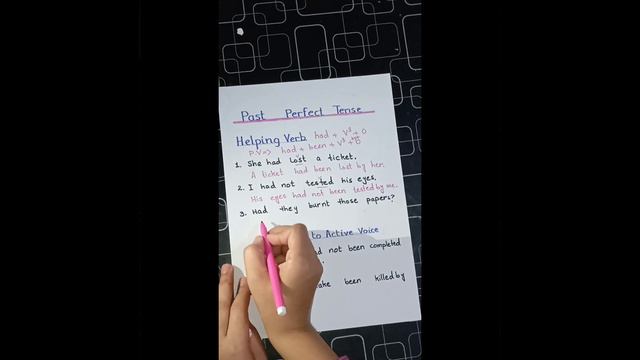 Past Perfect Tense
Helping Verb had + V³ + O
P.V => had + been + V³ + O
1. She had lost a ticket.
A ticket had been lost by her.
2. I had not tested his eyes.
His eyes had not been tested by me.
3. Had they burnt those papers?
to Active Voice
not been completed
been killed by